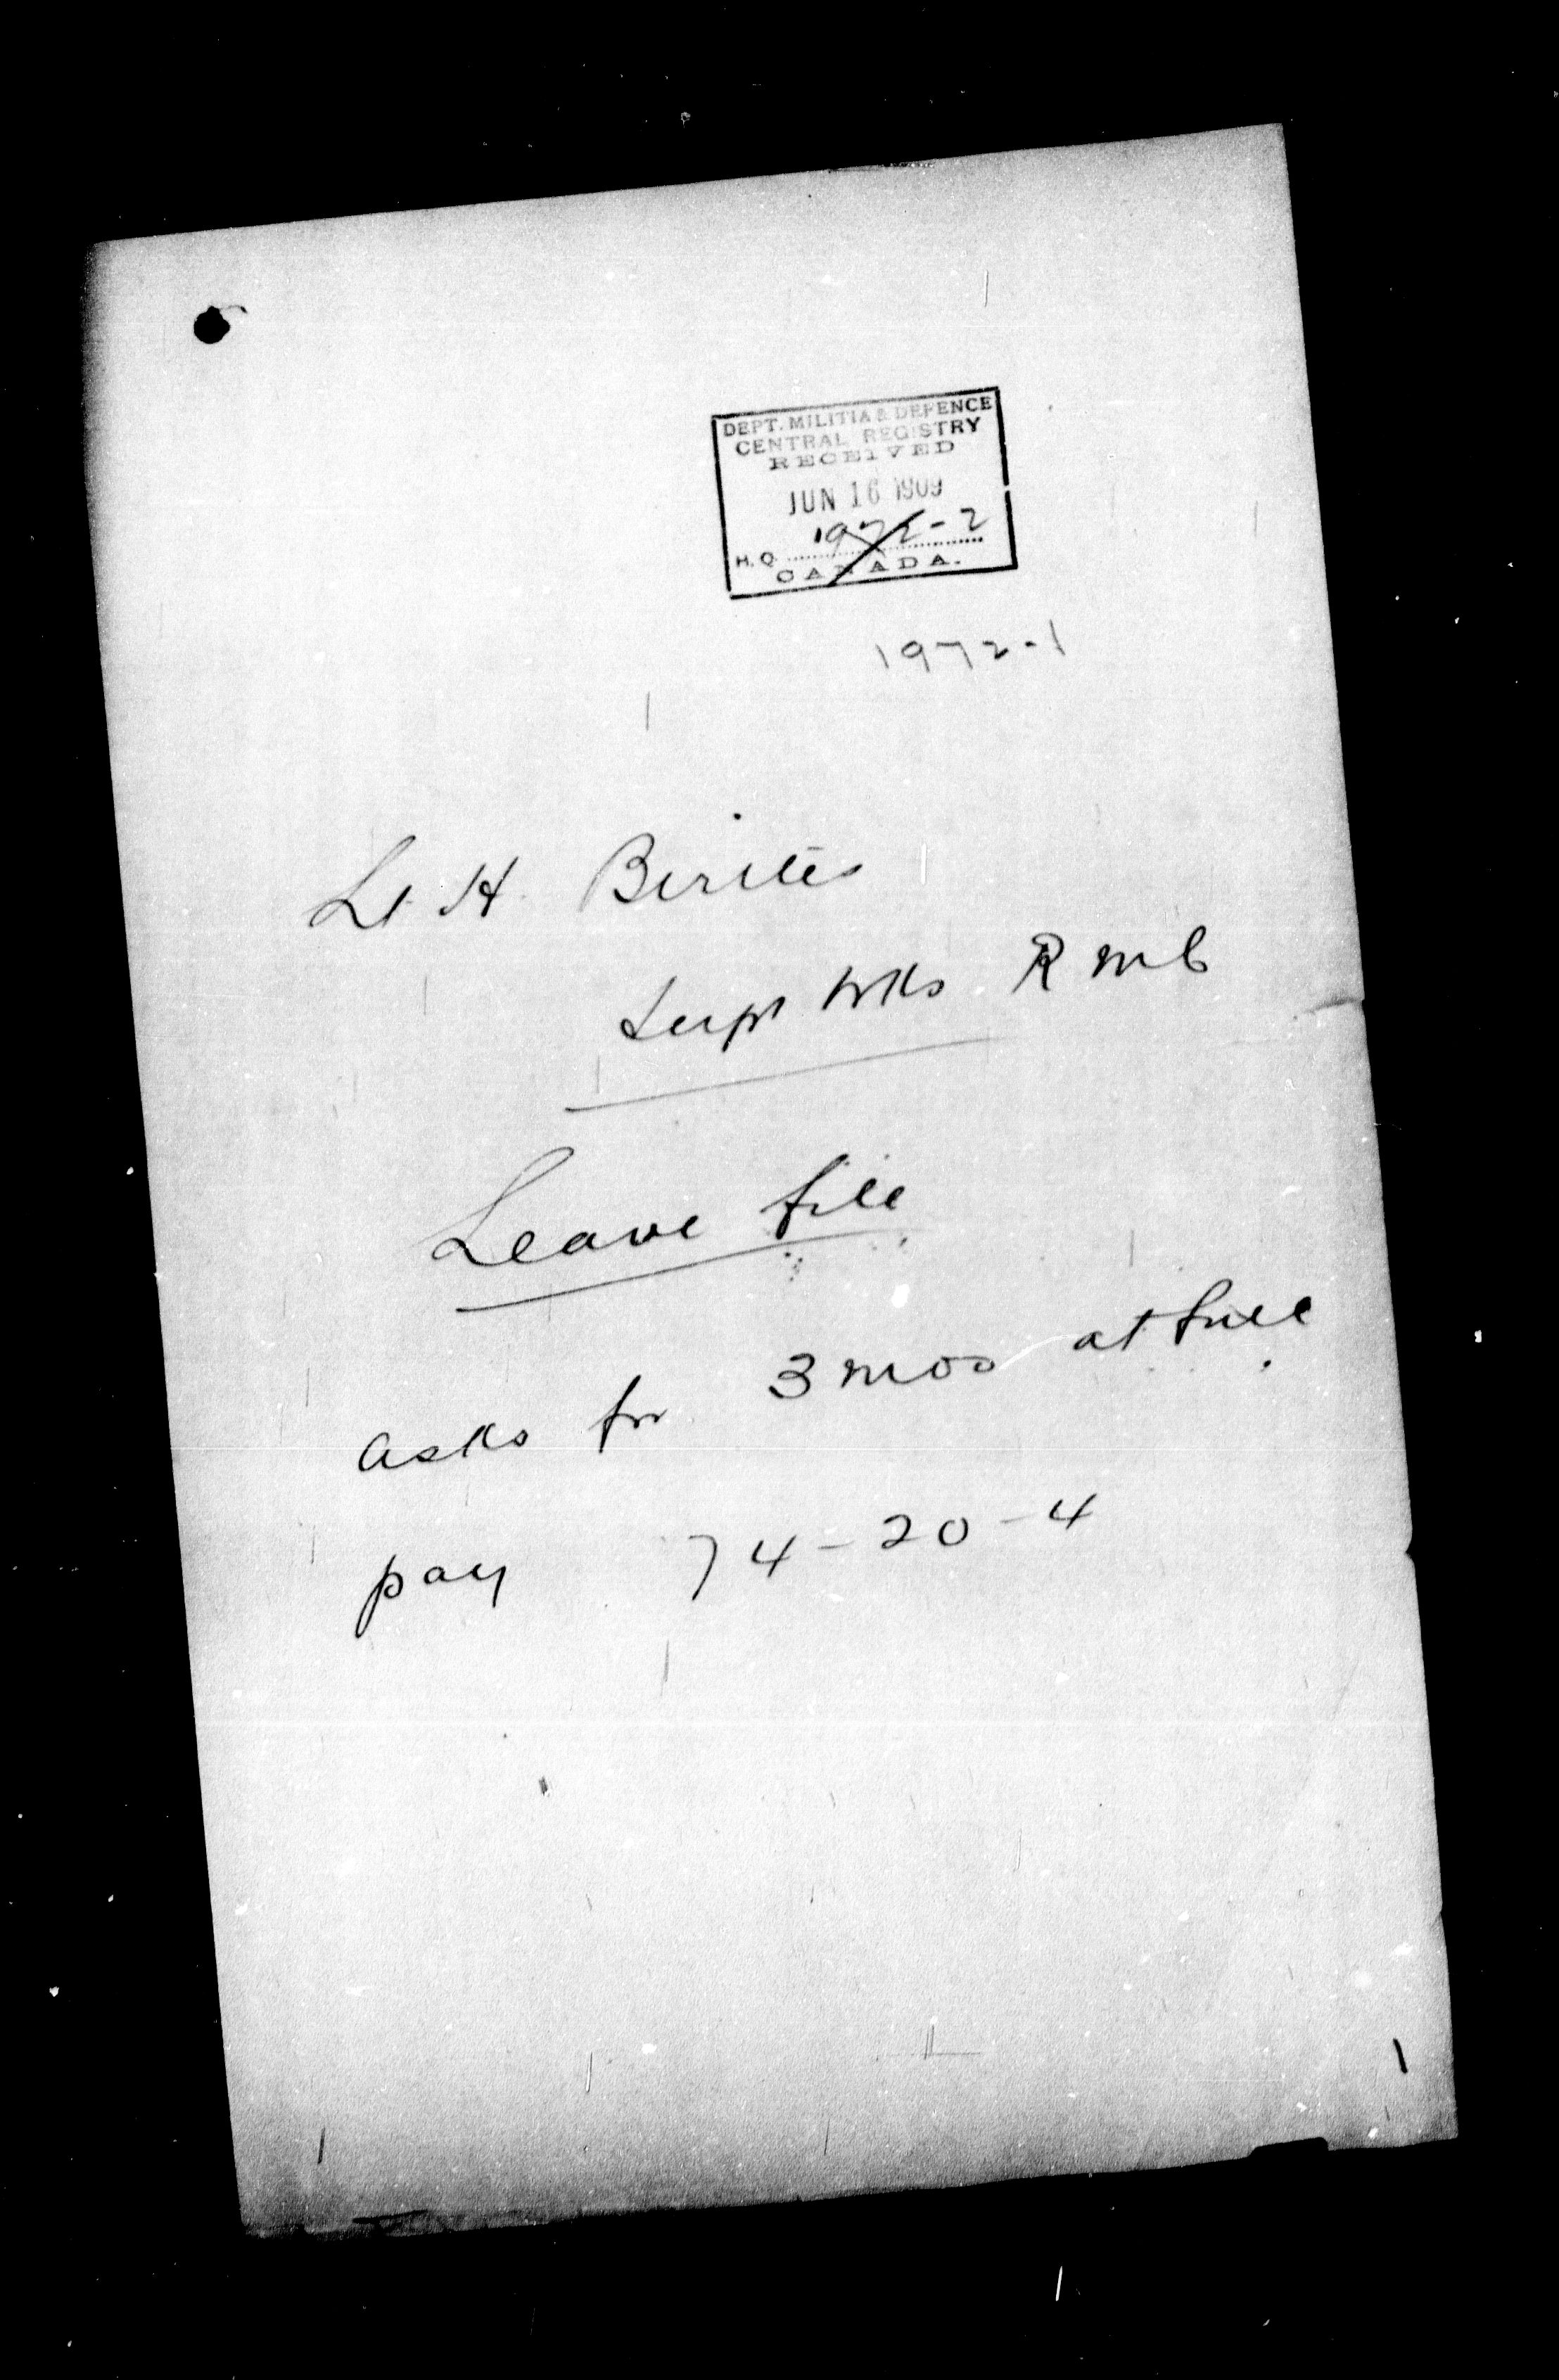 DEPT. MILITIA & DEFENCE
CENTRAL REGISTRY
RECEIVED
JUN 16 1909
H.Q. 1972-2
CANADA.
1972-1
Lt H.
Supt Wks R M C
Leave file
asks for 3 mos at full
pay 74-20-4